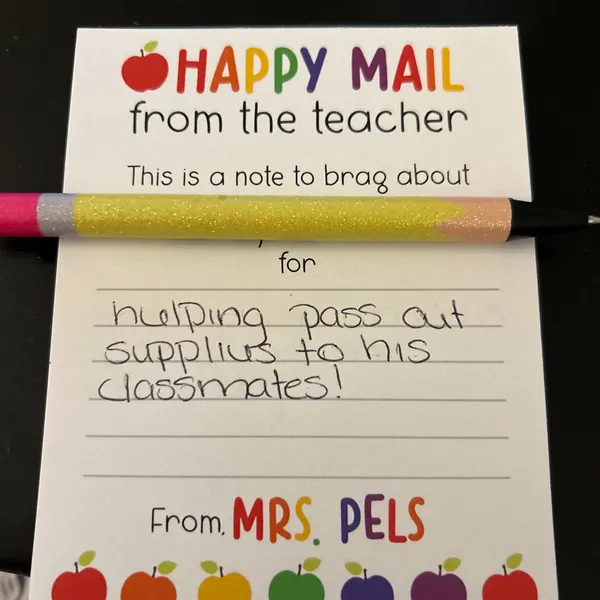 HAPPY MAIL
from the teacher
This is a note to brag about
for
helping pass out
supplies to his
classmates!
From, MRS. PELS